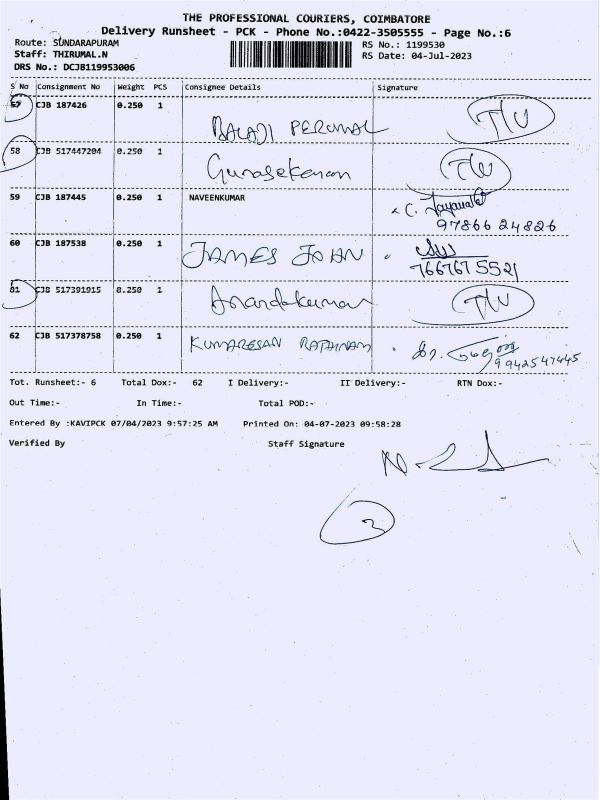 THE PROFESSIONAL COURIERS, COIMBATORE
Delivery Runsheet - PCK - Phone No.:0422-3505555 - Page No.:6
Route: SUNDARAPURAM RS No.: 1199530
Staff: THIRUMAL.N RS Date: 04-Jul-2023
DRS No.: DCJB119953006
S No Consignment No Weight PCS Consignee Details Signature
57 CJB 187426 0.250 1 BALAJI PERUMAL T/U
58 CJB 517447204 0.250 1 Gunasekaran T/U
59 CJB 187445 0.250 1 NAVEENKUMAR
97866 24826
60 CJB 187538 0.250 1 JAMES JOHN
766767 5521
61 CJB 517391915 0.250 1 Anandakumar T/U
62 CJB 517378758 0.250 1 KUMARESAN RATHINAM
9942547445
Tot. Runsheet:- 6 Total Dox:- 62 I Delivery:- II Delivery:- RTN Dox:-
Out Time:- In Time:- Total POD:-
Entered By :KAVIPCK 07/04/2023 9:57:25 AM Printed On: 04-07-2023 09:58:28
Verified By Staff Signature
3